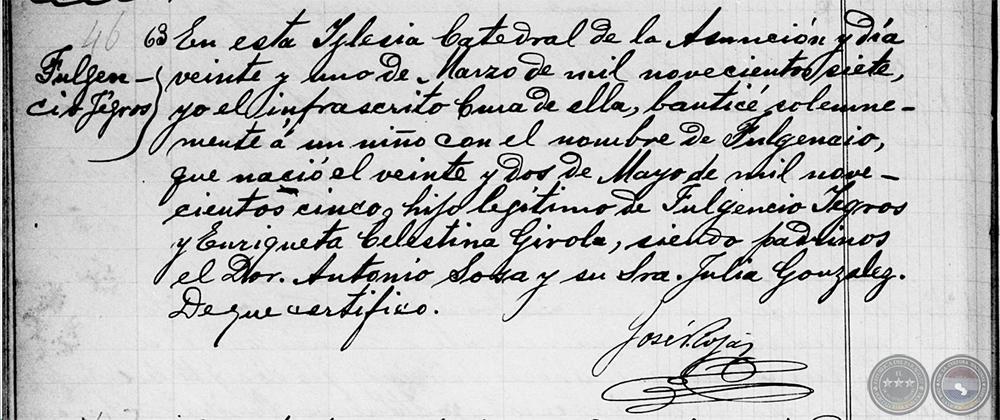 46
63 En esta Iglesia Catedral de la Asunción y día
Fulgen-
cio Yegros
veinte y uno de Marzo de mil novecientos siete,
yo el infrascrito Cura de ella, bauticé solemne-
mente á un niño con el nombre de Fulgencio,
que nació el veinte y dos de Mayo de mil nove-
cientos cinco, hijo legítimo de Fulgencio Yegros
y Enriqueta Celestina Girola, siendo padrinos
el Dor. Antonio Sosa y su Sra. Julia Gonzalez.
De que certifico.
José N. Rojas